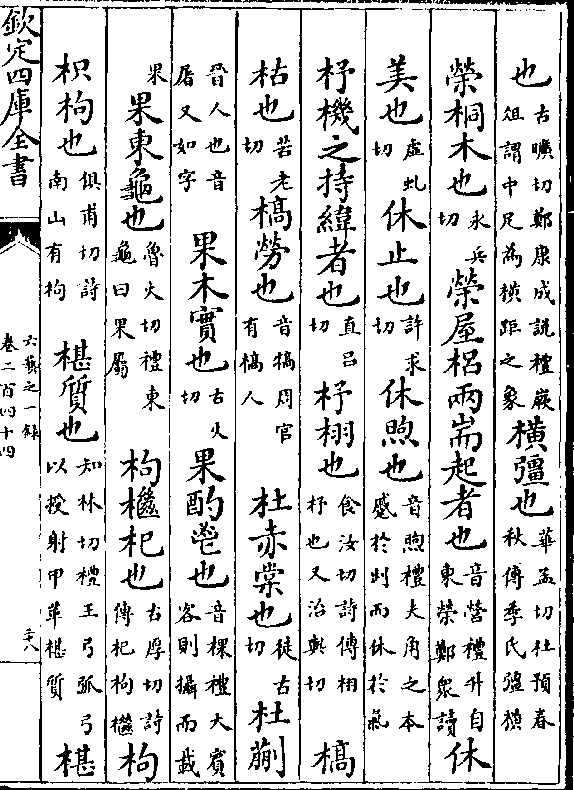 也古曠切鄭康成說禮嶡俎謂中足為橫距之象橫彊也華孟切杜預春秋傳季氏彊橫
榮桐木也永兵切榮屋梠兩耑起者也音營禮升自東榮鄭衆讀休
美也虛虬切休止也許求切休煦也音煦禮夫角之本慼於而休於氣
杼機之持緯者也直呂切杼栩也食汝切詩傳栩杼也又治與切槁
枯也苦老切槁勞也音犒周官有槁人杜赤棠也徒古切杜蒯
晉人也音屠又如字果木實也古火切果酌鬯也音祼禮大賓客則攝而載
果果東龜也魯火切禮東龜曰果屬枸檵杞也古厚切詩傳杞枸檵枸
枳枸也俱甫切詩南山有枸椹質也知林切禮王弓弧弓以授射甲革椹質椹
欽定四庫全書
六藝之一錄
卷二百四十四